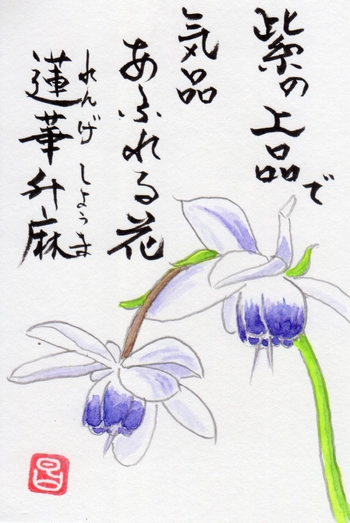 紫の上品で
気品
あふれる花
蓮華升麻
れんげしょうま